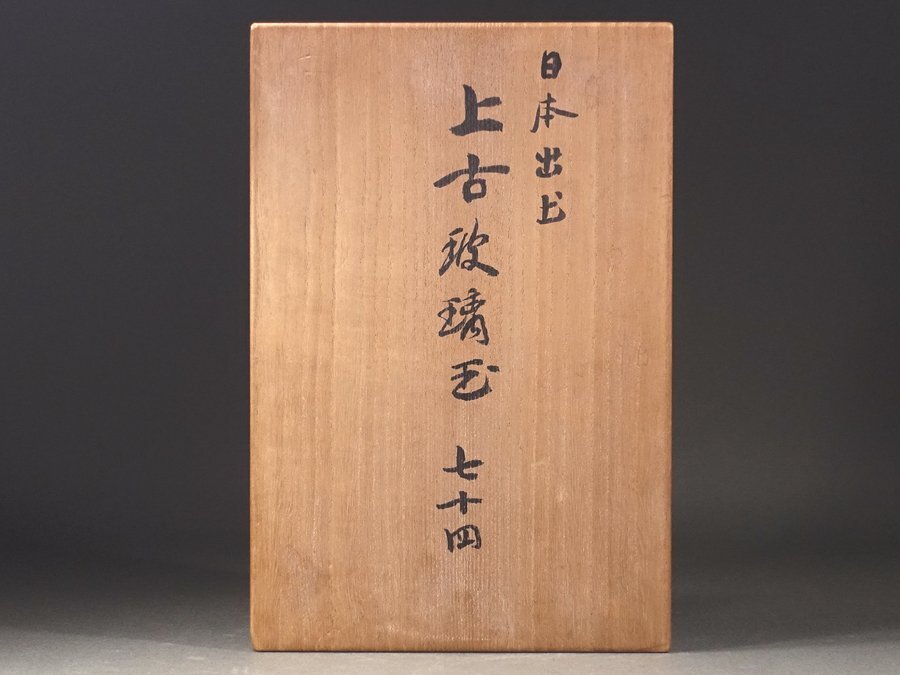 日本出土
上古玻璃玉 七十四